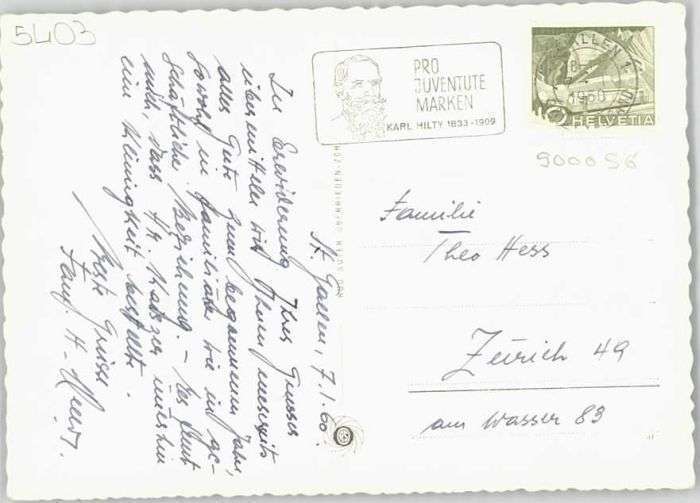 5403
PRO
JUVENTUTE
MARKEN
KARL HILTY 1833-1909
ST. GALLEN 1
1960
HELVETIA
900096
St. Gallen, 7.1.60.
In Erwiderung Ihres Grusses
übermitteln wir Ihnen unserseits
alles Gute zum begonnenen Jahr,
sowohl in familiärer wie in ge-
schäftlicher Beziehung. – Es freut
mich, dass Hr. immerhin
ein Kleinigkeit bestellte.
Best. Grüsse
Fam. H.
Familie
Theo Hess
Zürich 49
am Wasser 83